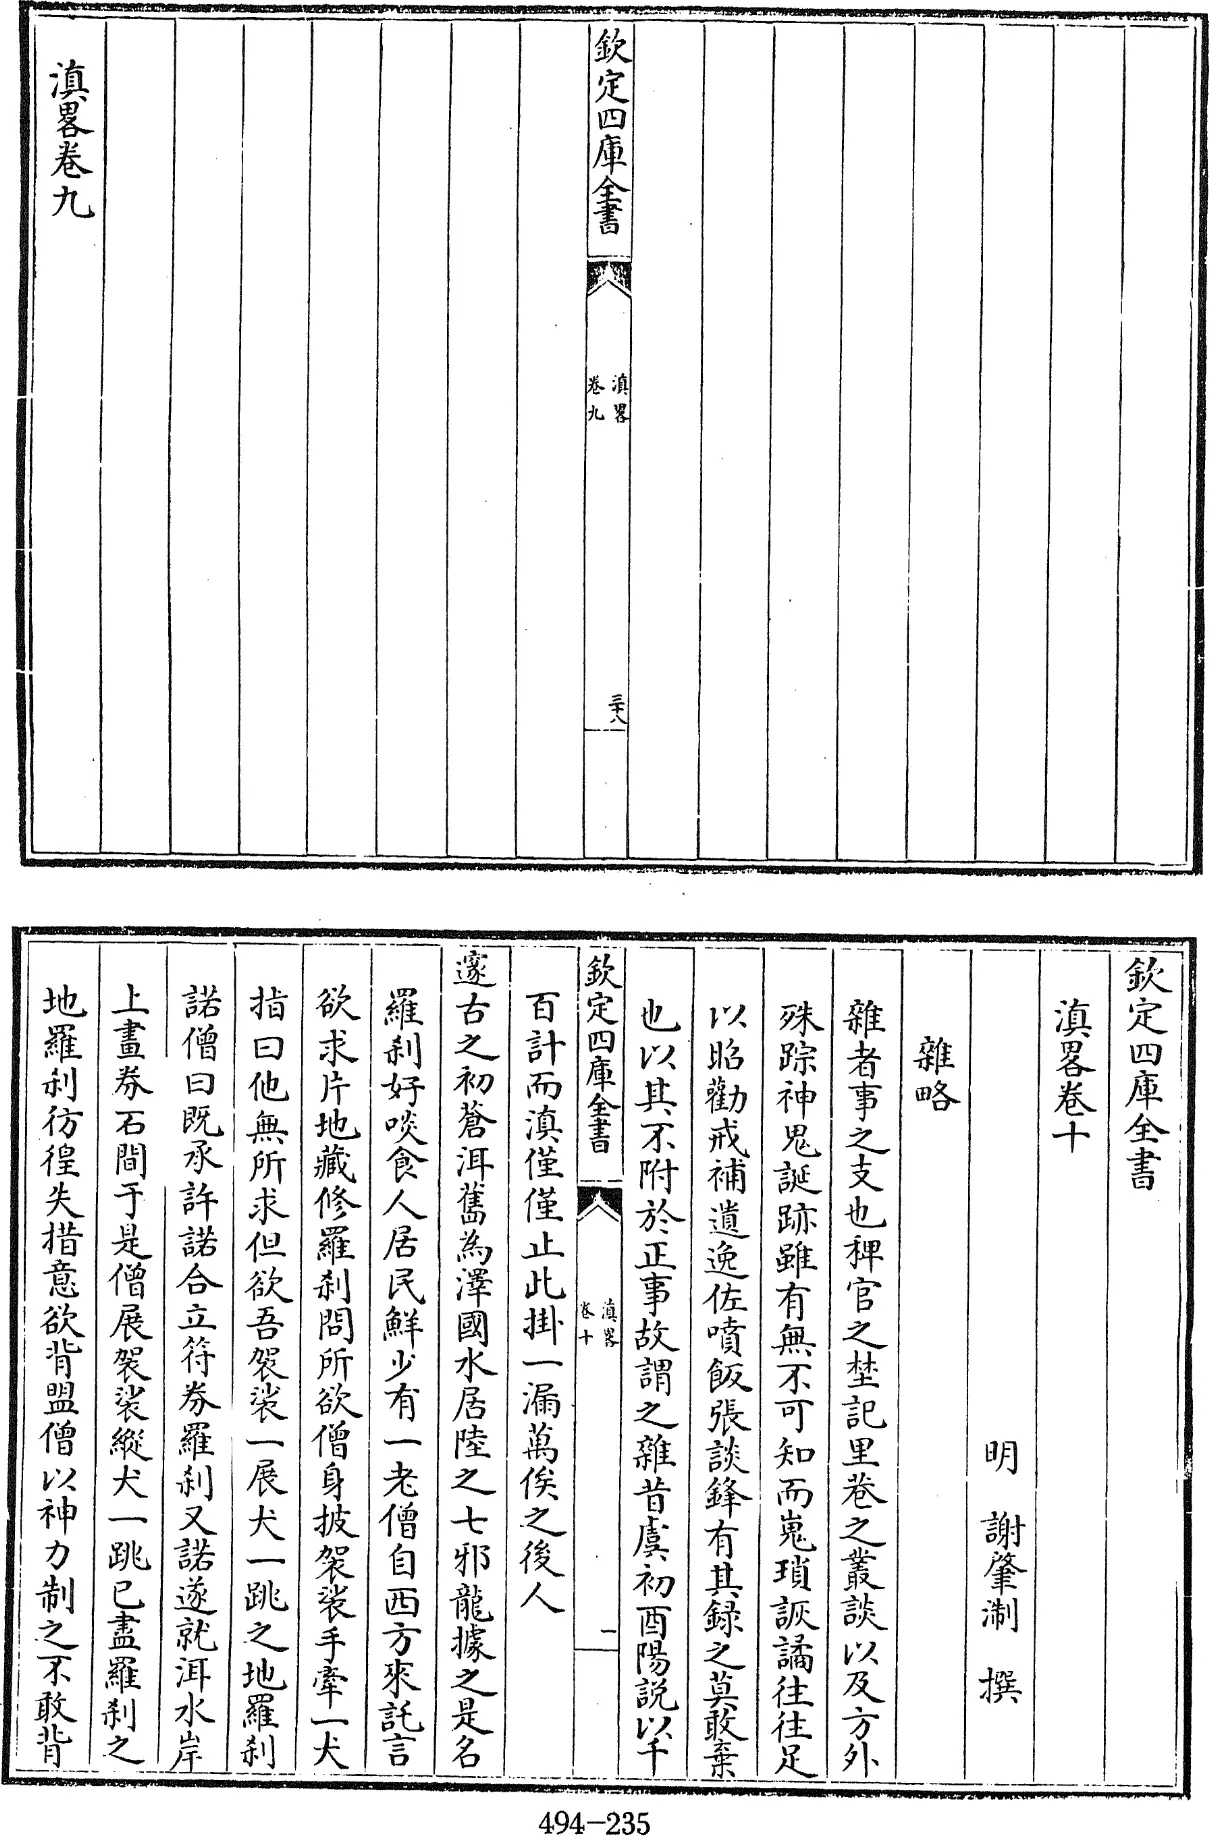 欽定四庫全書
滇畧
卷九
三十八
滇畧卷九
欽定四庫全書
滇畧卷十
明 謝肇淛 撰
雜略
雜者事之支也稗官之埜記里巷之叢談以及方外
殊踪神鬼誕跡雖有無不可知而嵬瑣詼譎往往足
以昭勸戒補遺逸佐噴飯張談鋒有其録之莫敢棄
也以其不附於正事故謂之雜昔虞初酉陽説以千
欽定四庫全書
滇畧
卷十
一
百計而滇僅僅止此掛一漏萬俟之後人
邃古之初蒼洱舊為澤國水居陸之七邪龍據之是名
羅刹好啖食人居民鮮少有一老僧自西方來託言
欲求片地藏修羅刹問所欲僧身披袈裟手牽一犬
指曰他無所求但欲吾袈裟一展犬一跳之地羅刹
諾僧曰既承許諾合立符券羅刹又諾遂就洱水岸
上畫券石間于是僧展袈裟縱犬一跳已盡羅刹之
地羅刹彷徨失措意欲背盟僧以神力制之不敢背
494-235